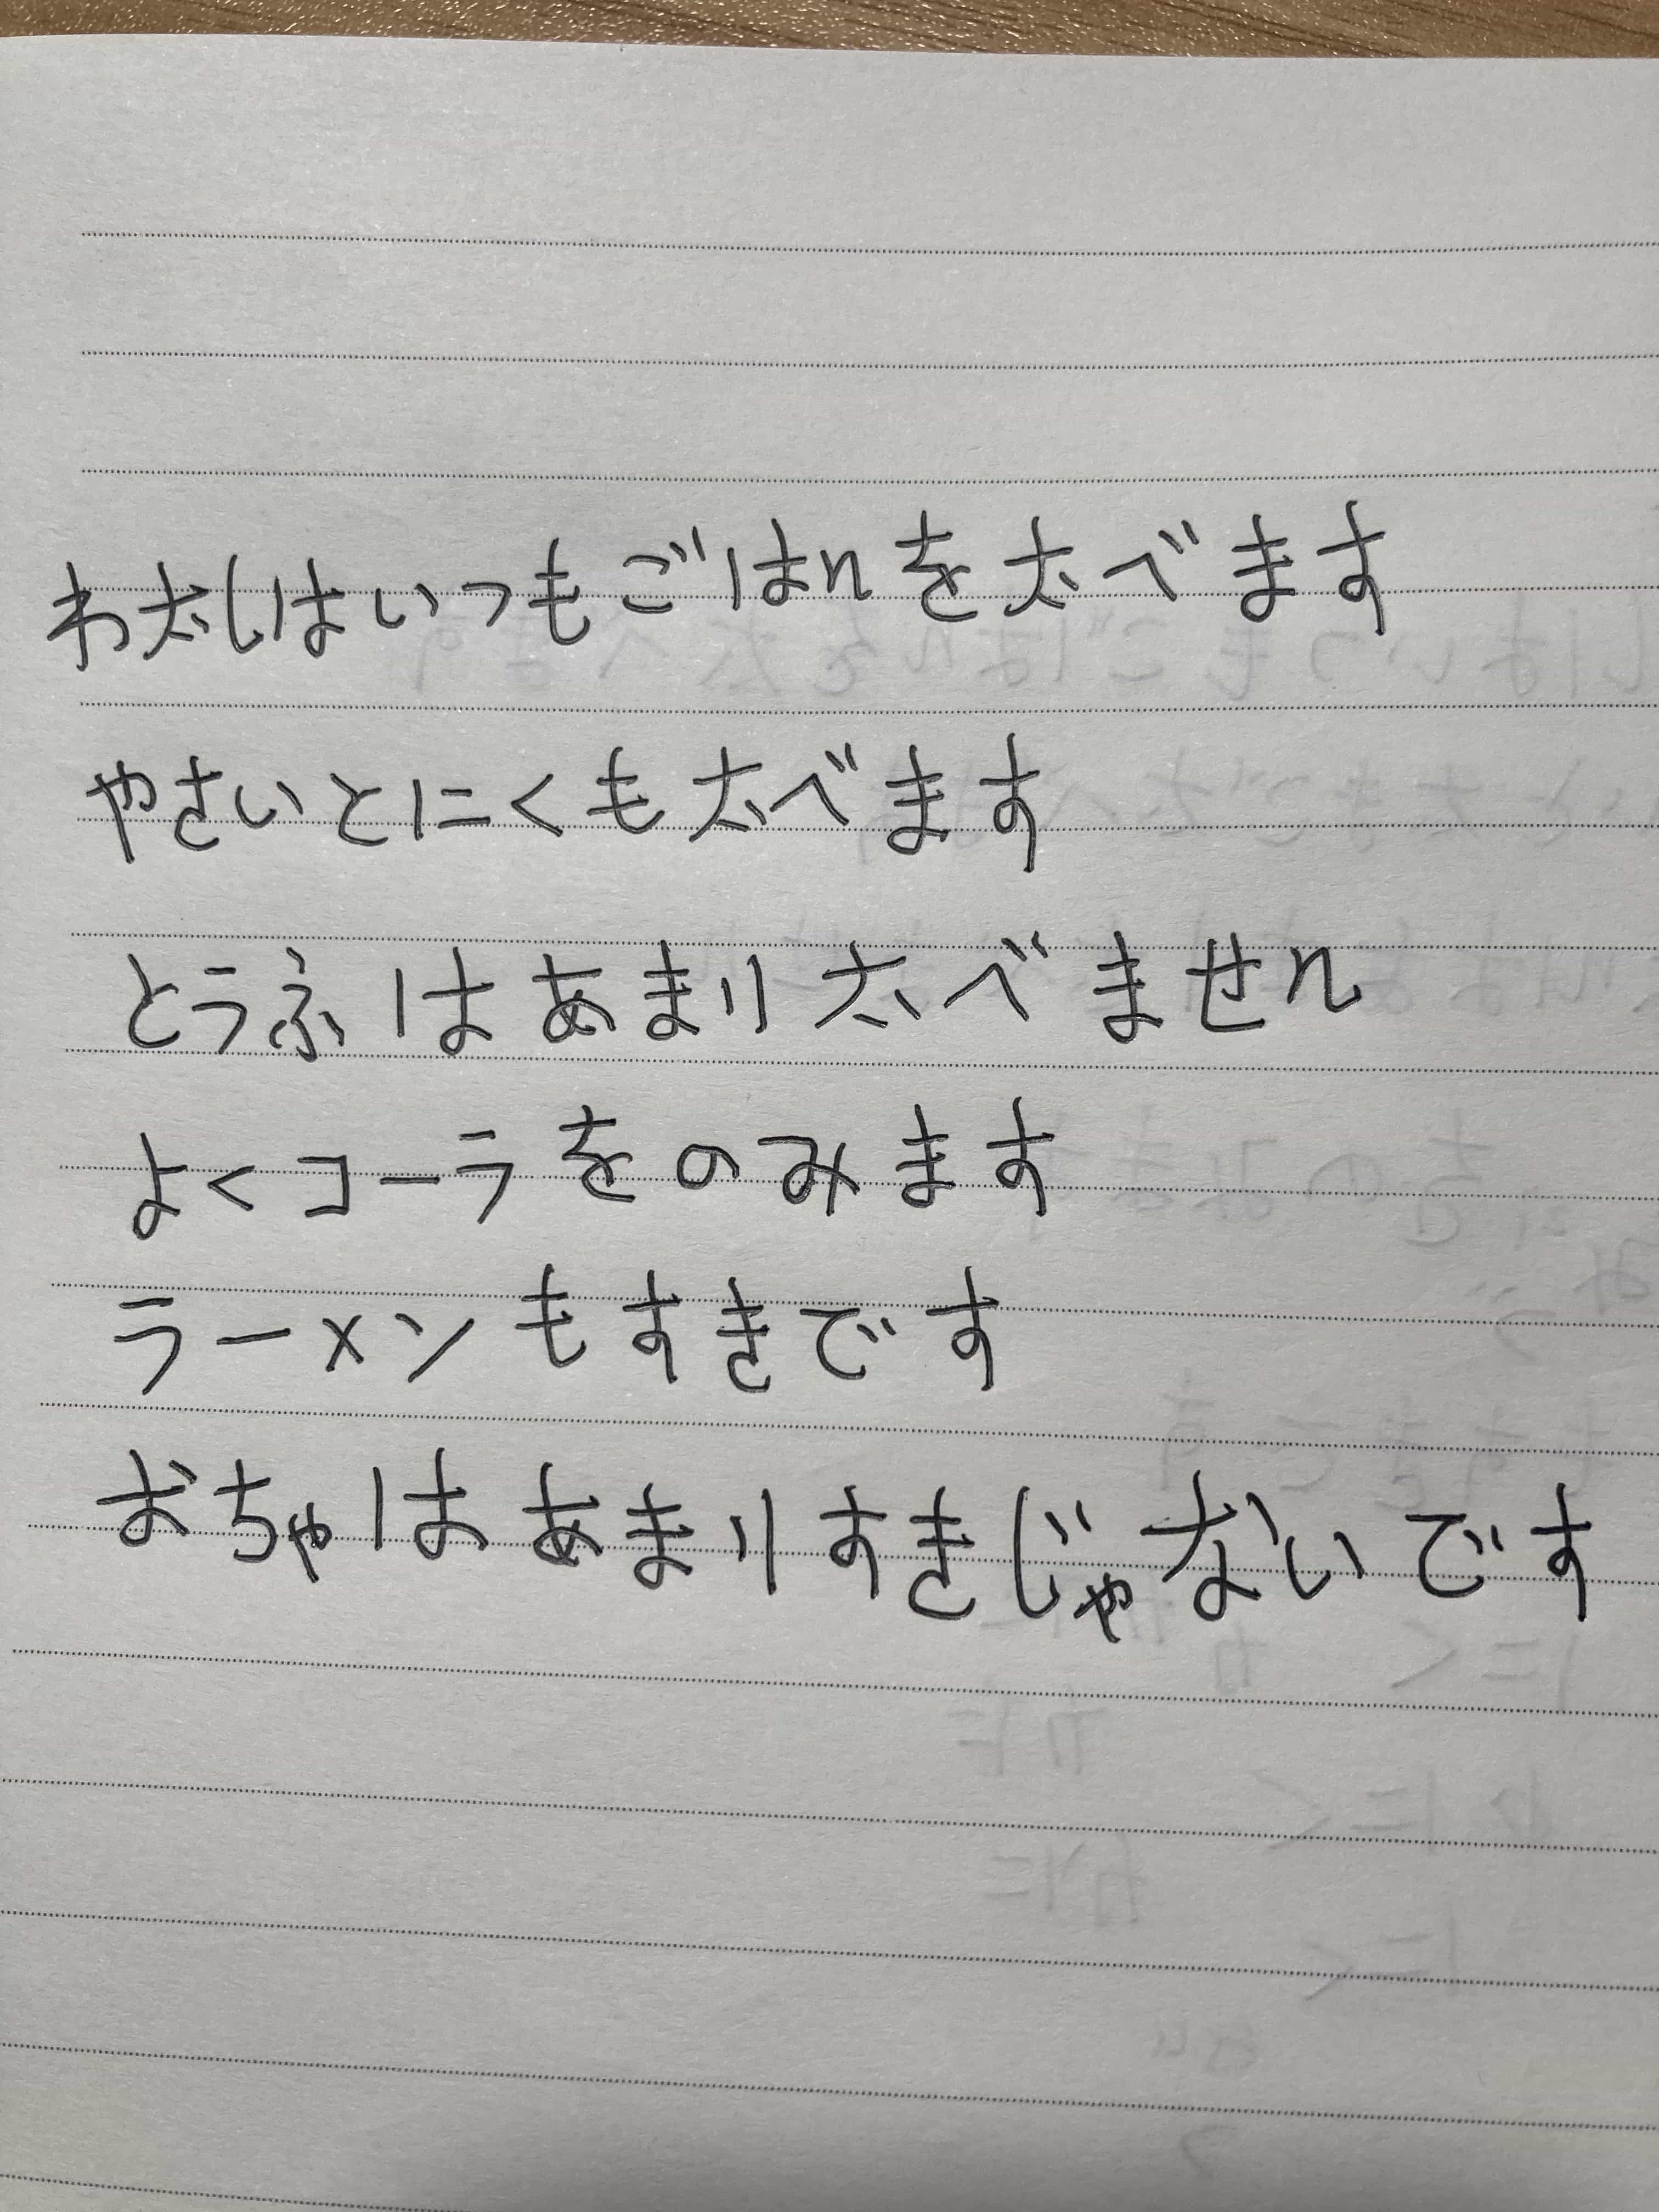 わたしはいつもごはんをたべます
やさいとにくもたべます
とうふはあまりたべません
よくコーラをのみます
ラーメンもすきです
おちゃはあまりすきじゃないです